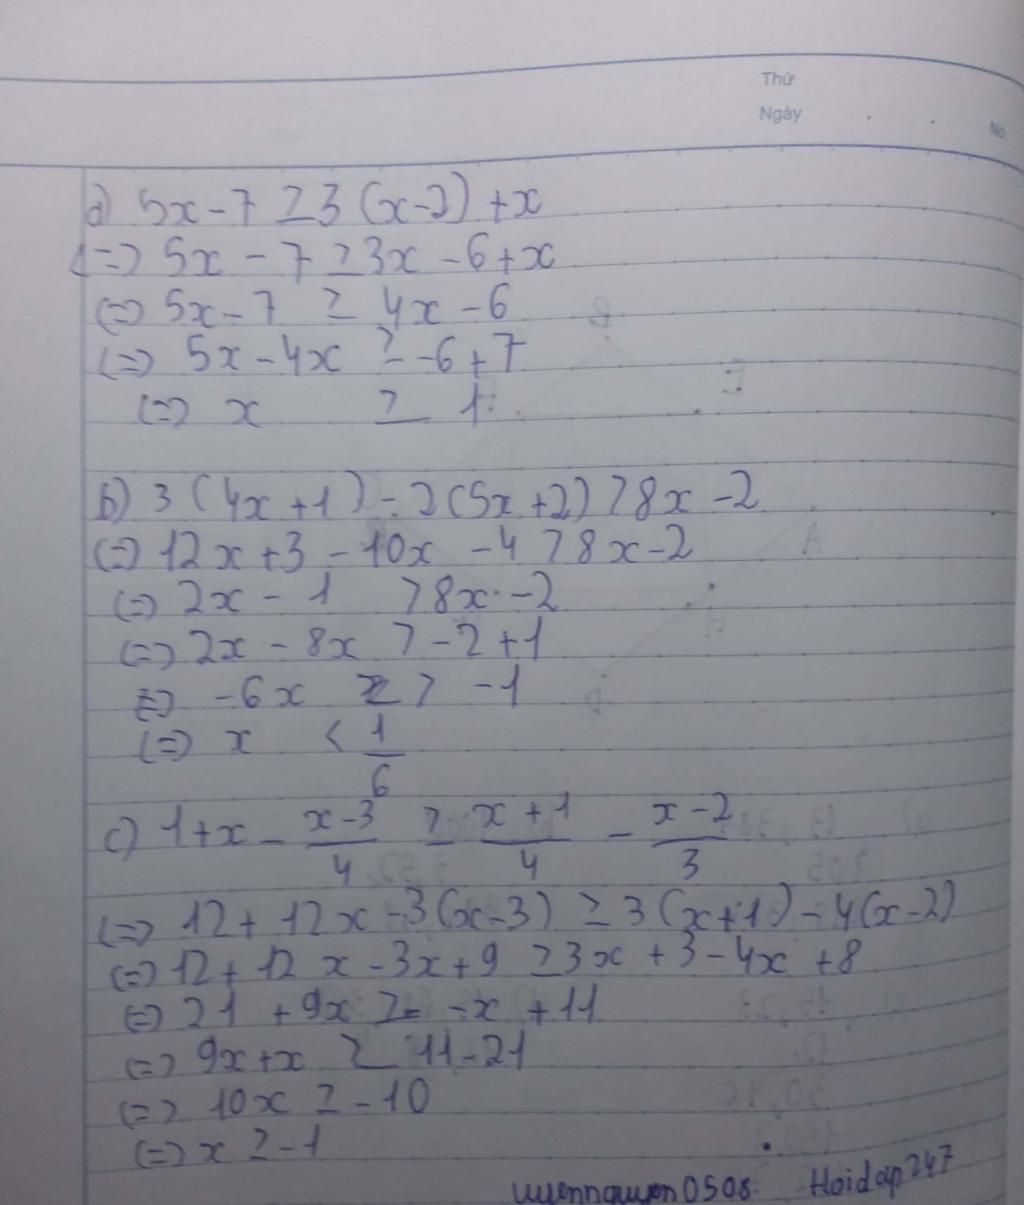 Thứ
Ngày
No
a) 5x - 7 ≥ 3 (x-2) + x
(=) 5x - 7 ≥ 3x - 6 + x
(=) 5x - 7 ≥ 4x - 6
(=) 5x - 4x ≥ -6 + 7
(=) x ≥ 1
b) 3 (4x + 1) - 2 (5x + 2) > 8x - 2
(=) 12x + 3 - 10x - 4 > 8x - 2
(=) 2x - 1 > 8x - 2
(=) 2x - 8x > -2 + 1
(=) -6x > -1
(=) x < 1/6
c) 1 + x - (x-3)/4 ≥ (x+1)/4 - (x-2)/3
(=) 12 + 12x - 3(x-3) ≥ 3(x+1) - 4(x-2)
(=) 12 + 12x - 3x + 9 ≥ 3x + 3 - 4x + 8
(=) 21 + 9x ≥ -x + 11
(=) 9x + x ≥ 11 - 21
(=) 10x ≥ -10
(=) x ≥ -1
uyennguyen0508 Hoidap247